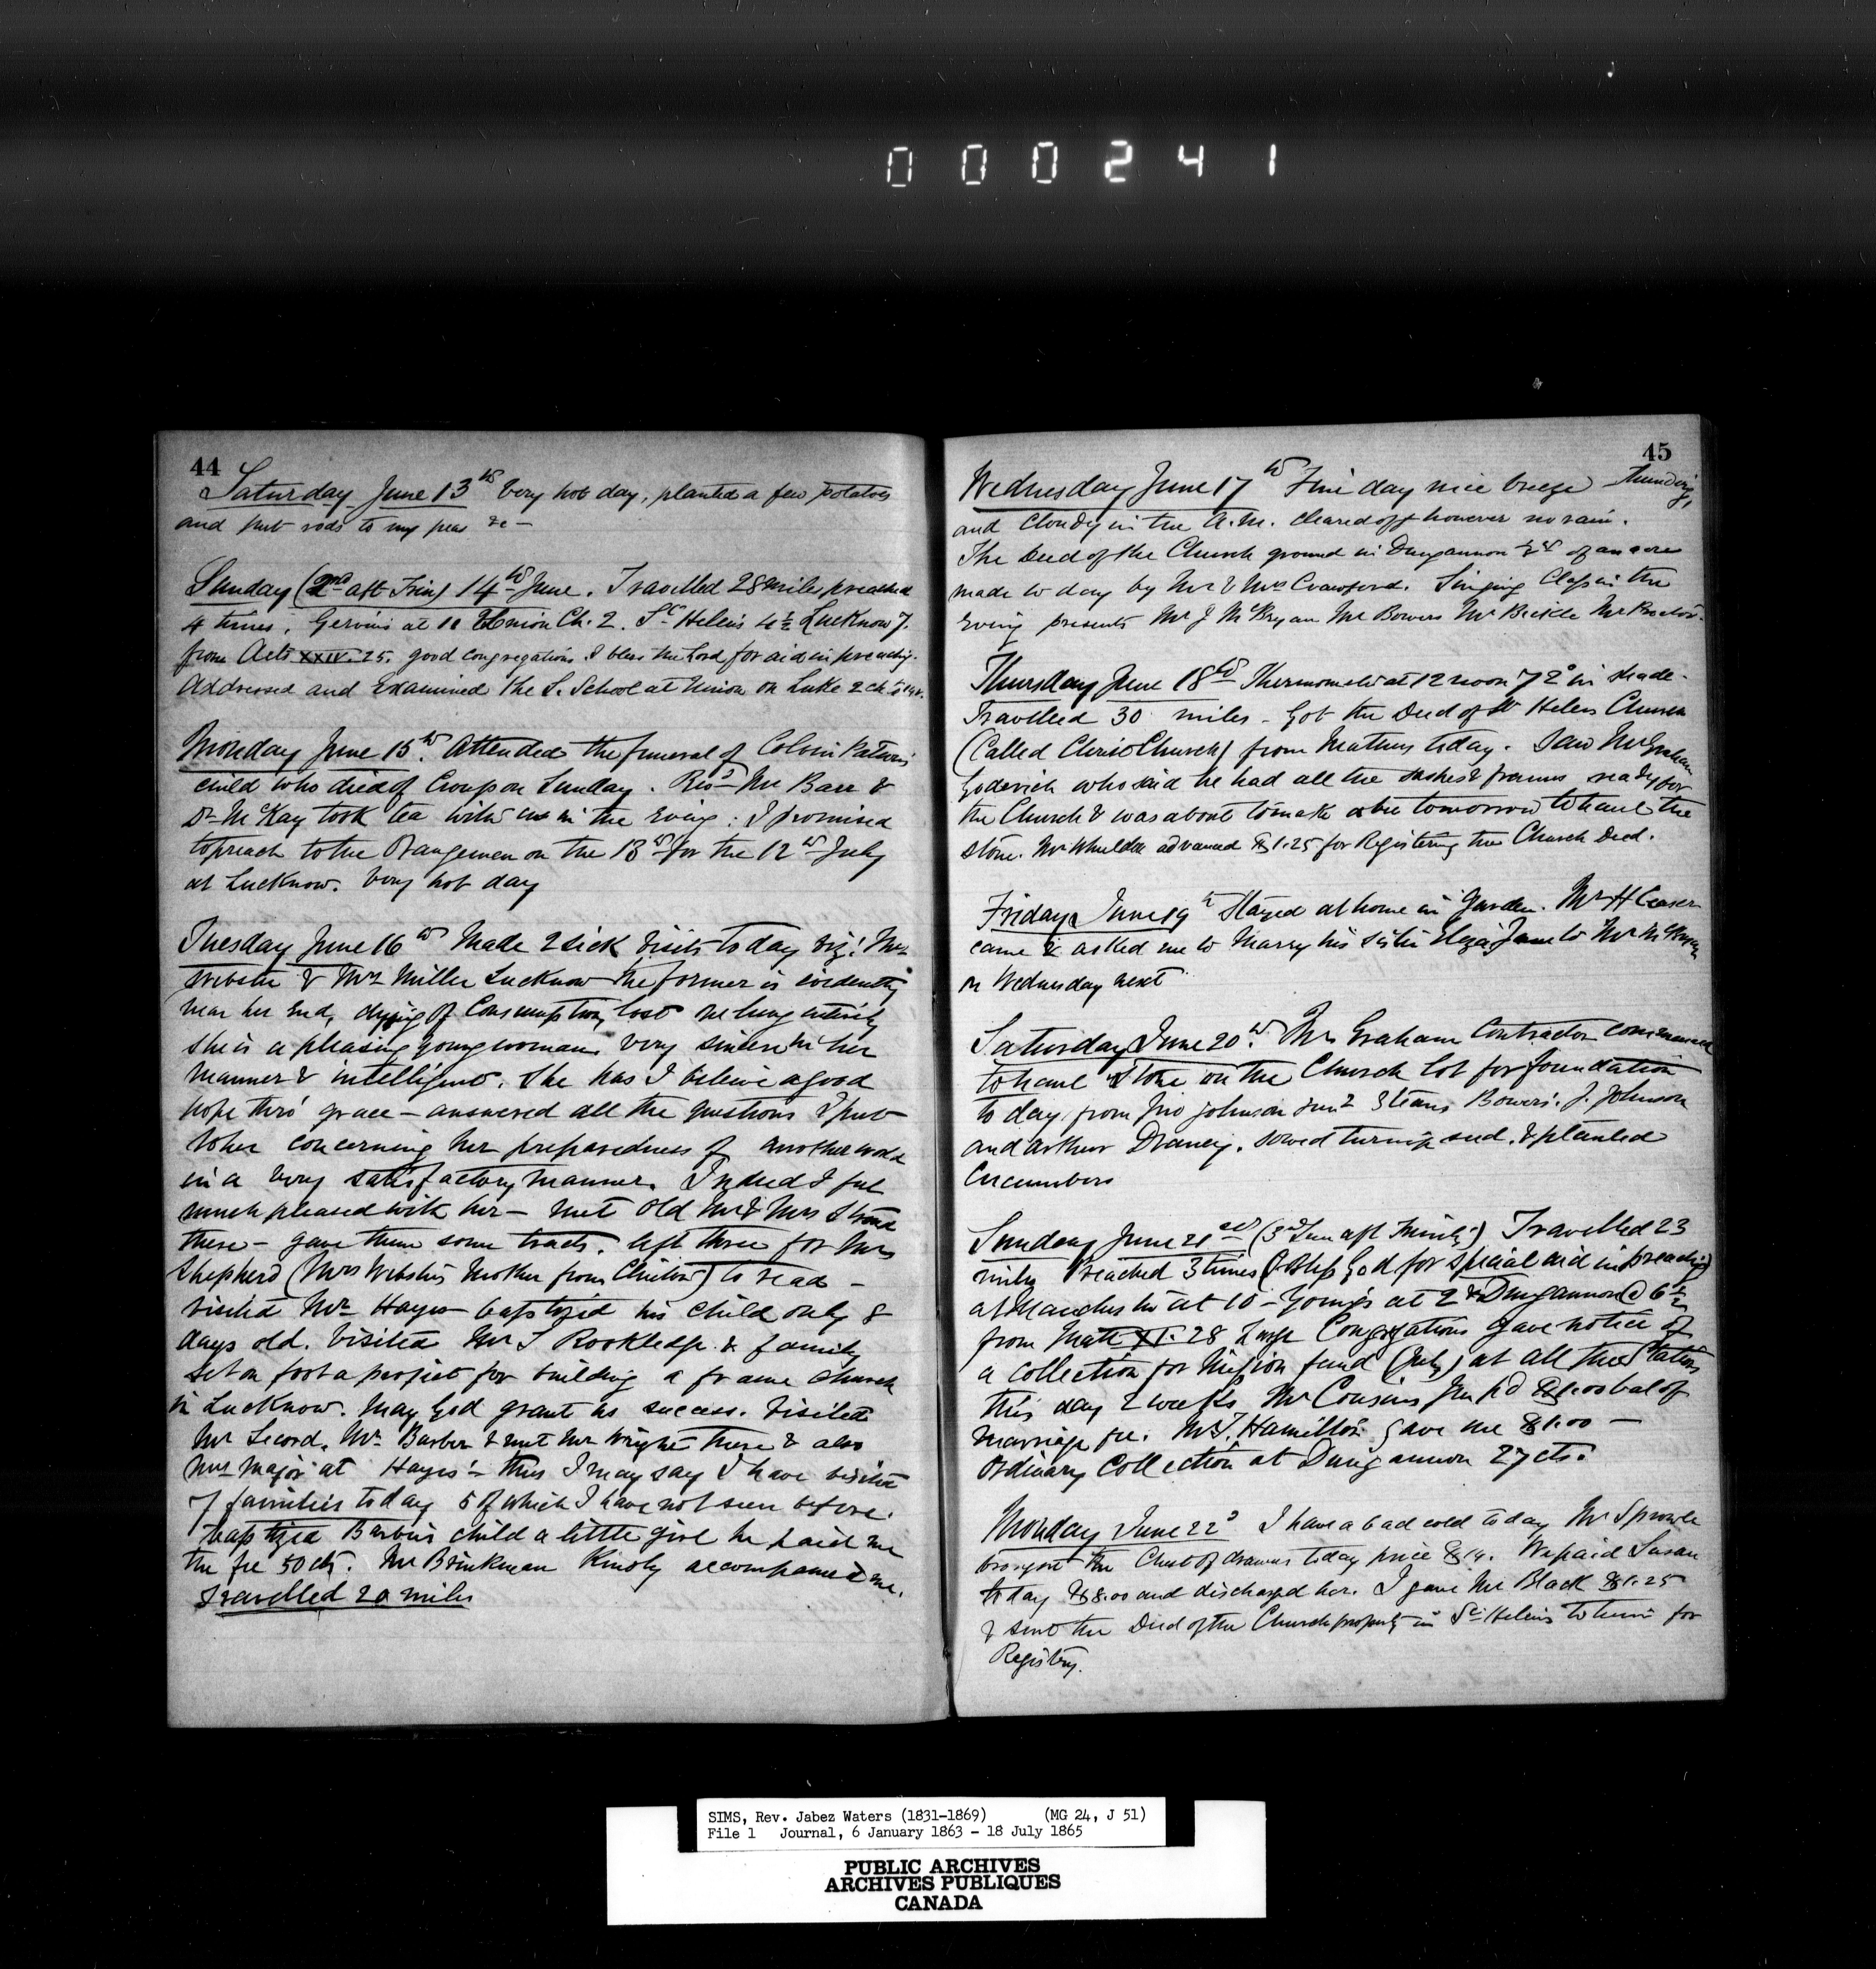 000241
44
Saturday June 13th Very hot day, planted a few potatoes
and put rods to my peas &c —
Sunday (2nd aft Trin) 14th June. Travelled 28 miles, preached
4 times. Gervins at 10 Union Ch. 2. St Helens 4½ Lucknow 7.
from Acts XXIV. 25. good congregations I bless the Lord for aid in preachg.
Addressed and Examined the S. School at Union on Luke 2 ch.
Monday June 15th. Attended the funeral of Colvin
child who died of Croup on Sunday. Revd Mr Barr &
Dr McKay took tea with us in the Eving: I promised
to preach to the Orangemen on the 13th for the 12th July
at Lucknow. Very hot day
Tuesday June 16th Made 2 sick visits today viz: Mrs
Webster & Mrs Miller Lucknow the former is evidently
near her End, dying of Consumption, lost one lung entirely
she is a pleasing young woman very sincere in her
manner & intelligent. She has I believe a good
hope thro' grace — answered all the questions I put
to her concerning her preparedness of another world
in a very satisfactory manner. Indeed I feel
much pleased with her — met old Mr & Mrs
there — gave them some tracts. left three for Mrs
Shepherd (Mrs Websters Mother from Clinton) to read —
visited Mr Hayes baptized his child only 8
days old. Visited Mr S Rookledge & family
set on foot a project for building a frame church
in Lucknow. May God grant us success. Visited
Mr Secord, Mr Barber & met Mr Wright there & also
Mrs Major at Hayes' — thus I may say I have visited
7 families today 5 of which I have not seen before.
baptized Barbers child a little girl he paid me
the fee 50 cts. Mr Brinkman Kindly accompanied me.
Travelled 20 miles
45
Wednesday June 17th Fine day nice breeze thundrg,
and Cloudy in the A.M. cleared off however no rain.
The Deed of the Church ground in Dungannon of an acre
made to day by Mr & Mrs Crawford. Singing Class in the
Eving presents Mr J McBryan Mr Bowers Mr Bickle Mr Proctor.
Thursday June 18th Thermometer at 12 noon 72° in shade —
Travelled 30 miles — Got the Deed of St Helens Church
(Called Christ Church) from Mathers today. Saw Mr Graham
Goderich who said he had all the sashes & frames ready for
the Church & was about to make a bee tomorrow to haul the
stone. Mr Whuldee advanced $1.25 for Registering the Church Deed.
Friday June 19th Stayed at home in garden. Mr H Ceaser
came & asked me to Marry his sister Eliza Jane to Mr
on Wednesday next
Saturday June 20th. Mr Graham Contractor commenced
to haul Stone on the Church lot for foundation
to day from Jno Johnson Junr 3 teams Bowers. J. Johnson
and Arthur Dranery. sowed turnip seed, & planted
Cucumbers
Sunday June 21st (3rd Sun aft Trinity) Travelled 23
miles Preached 3 times (I bless God for special aid in preaching)
at Manchester at 10 — Youngs at 2 & Dungannon @ 6½
from Matt XI. 28 Large Congregations gave notice of
a collection for Mission fund (July) at all these Stations
this day 2 weeks. Mr Cousins Jun pd $1.00 bal of
marriage fee. Mr J. Hamilton gave me $1.00 —
Ordinary Collection at Dungannon 27 cts.
Monday June 22d I have a bad cold today Mr Sprowle
brought the Chest of drawers today price $14. We paid Susan
to day $8.00 and discharged her. I gave Mr Black $1.25
& sent the Deed of the Church property in St Helens to him for
Registry.
SIMS, Rev. Jabez Waters (1831-1869) (MG 24, J 51)
File 1 Journal, 6 January 1863 - 18 July 1865
PUBLIC ARCHIVES
ARCHIVES PUBLIQUES
CANADA